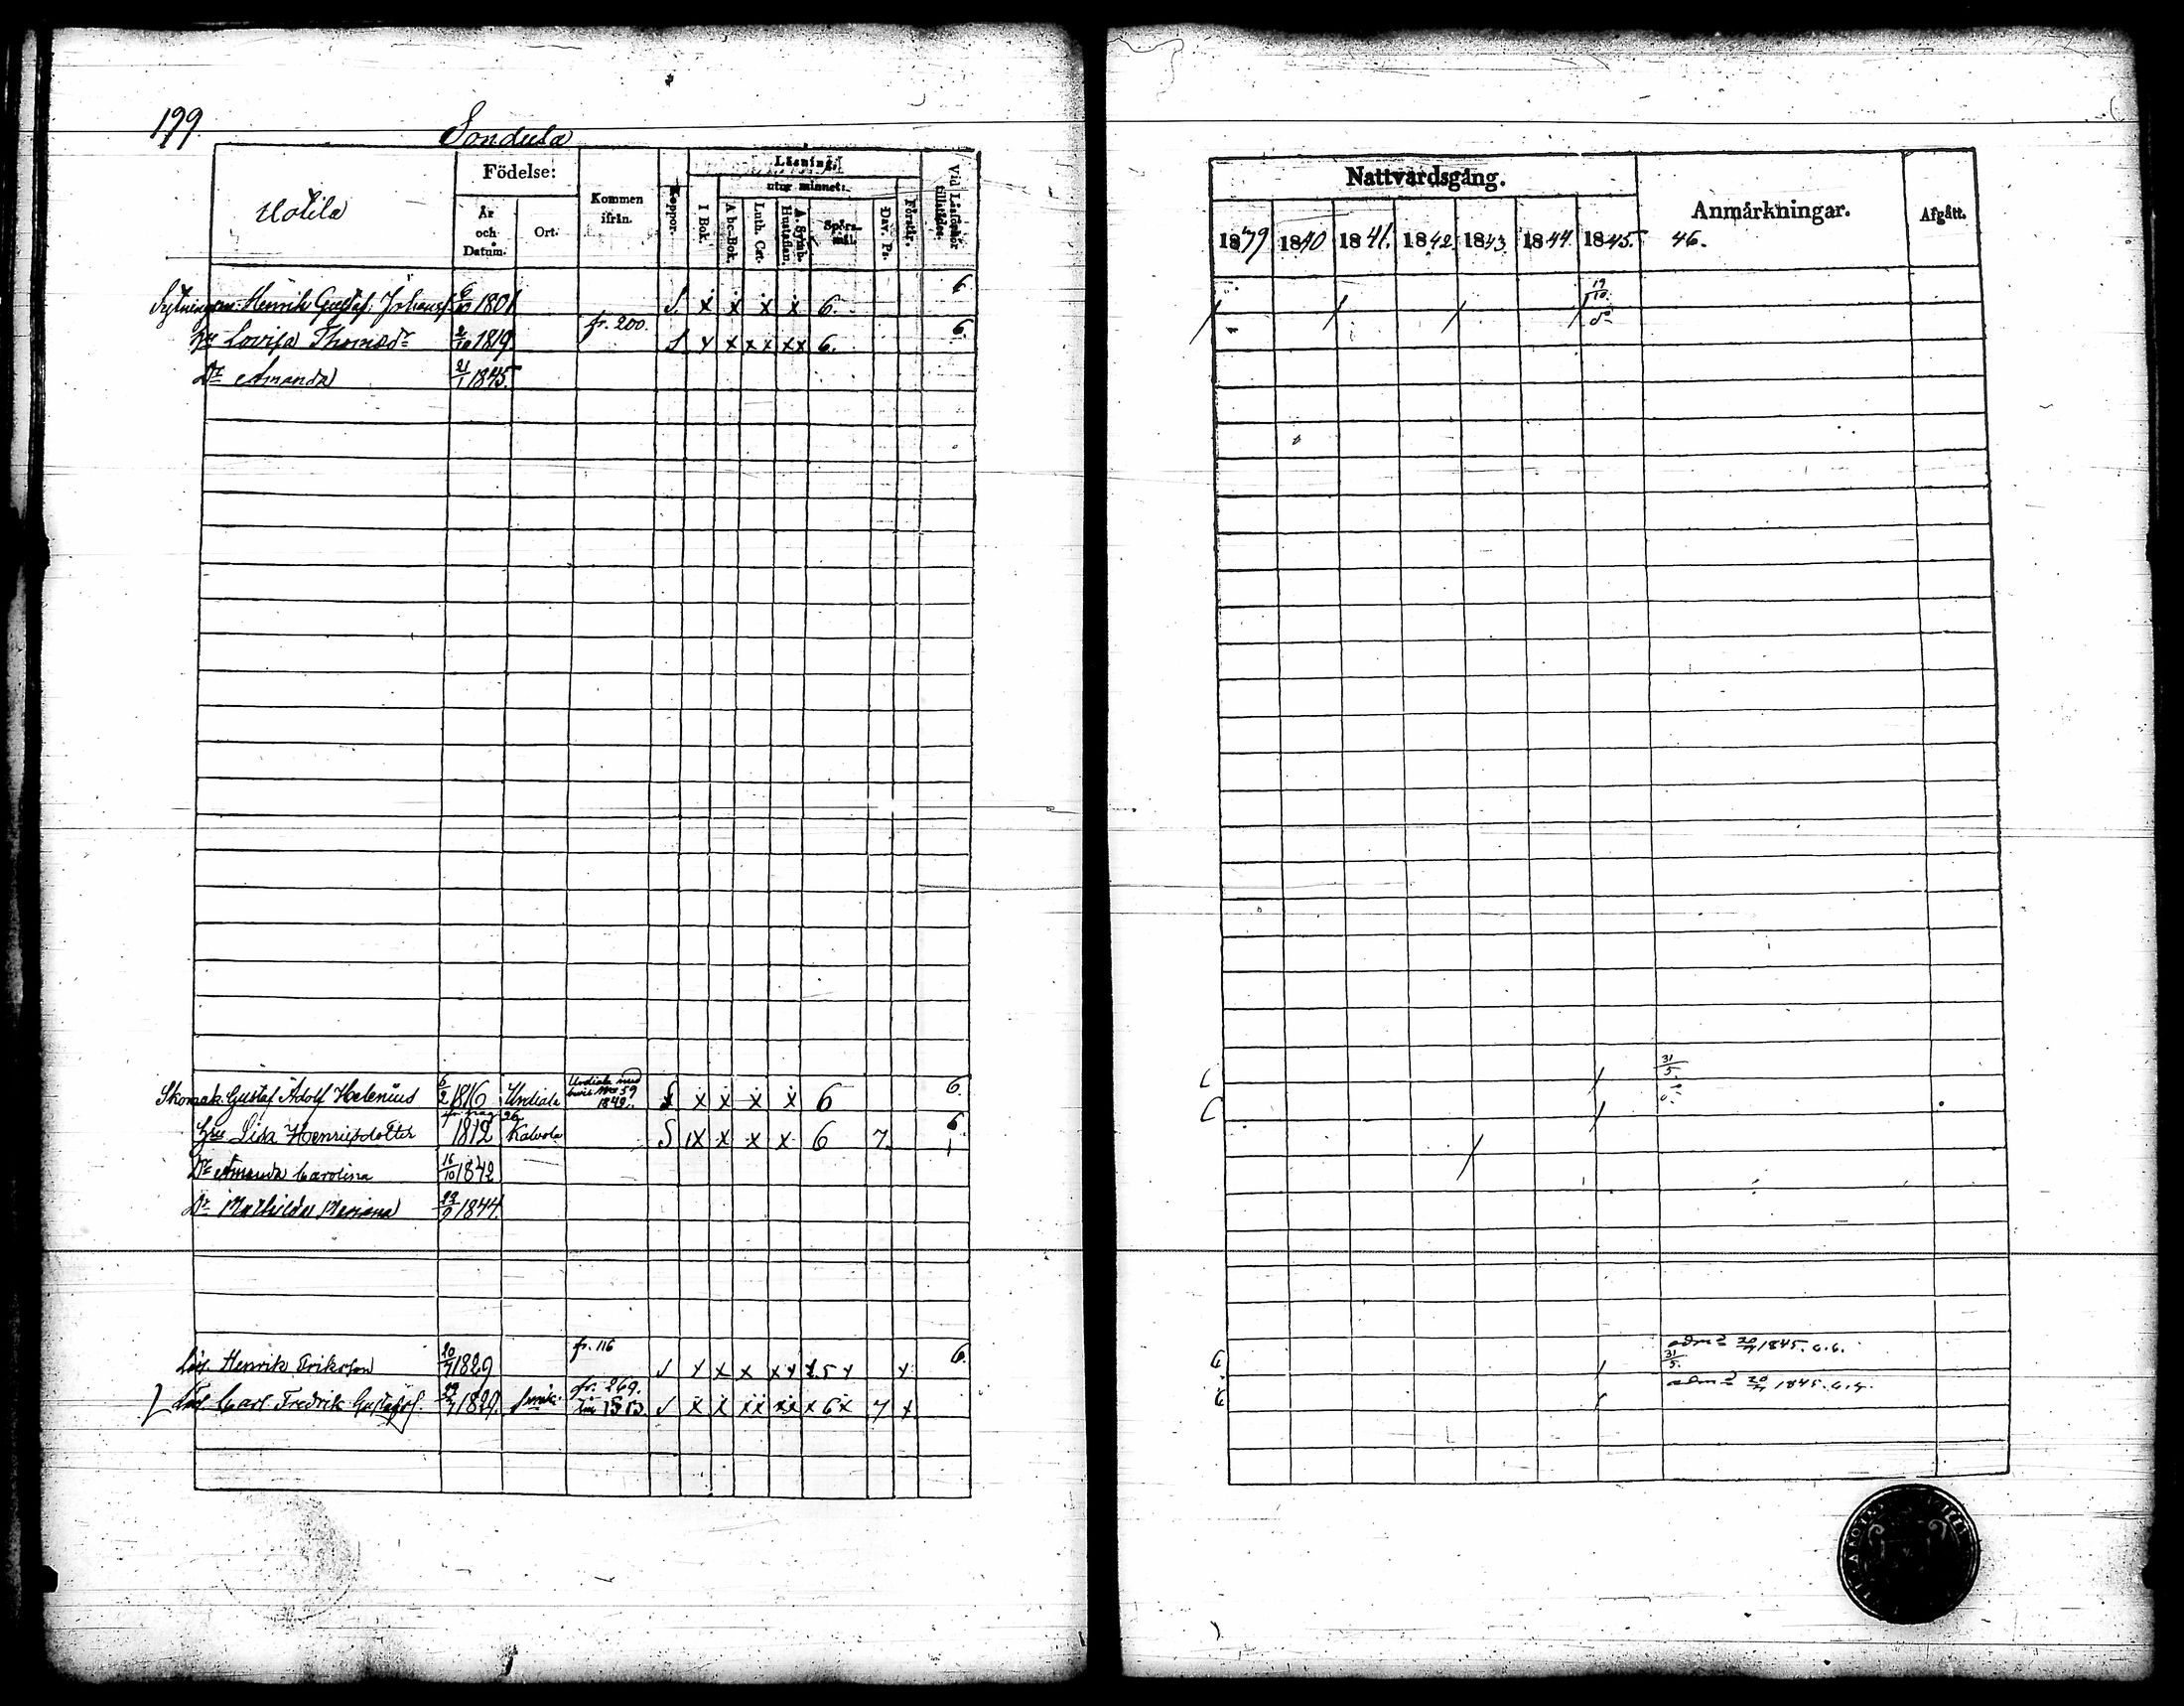 199.
Sondula
Uotila
Födelse:
År och Datum.
Ort.
Kommen ifrån.
Koppor.
Läsning.
utur minnet:
I Bok.
A bc-Bok.
Luth. Cat.
A. Symb. Hustaflan
Spörs-mål.
Dav. Ps.
Förstår.
Vid Läsförhör tillstådes.
Henrik Gustaf Johansf 6/10 1801 S. x x x x 6. 6
Hu Lovisa Thomasdr 2/10 1819 fr. 200. S x x x x x x 6. 6
Dr Amanda 21/1 1845.
Skomak. Gustaf Adolf Helenius 6/2 1816 Urdiala Urdiala med No 59 1842. S x x x x 6 6.
Hu Lisa Henriksdotter 1812 Kalvola S x x x x 6 7. 6
Dr Amanda Carolina 16/10 1842
Dr Mathilda Mariana 1844.
Henrik Eriksson 20/7 1829 fr. 116 S x x x x x 5 x x 6.
Carl Fredrik Gustafss. 1829. fr. 269. S x x x x x x x 6 x 7 x
Nattvardsgång.
1839 1840 1841. 1842 1843 1844. 1845.
Anmärkningar.
46.
Afgått.
19/10
31/5.
adm 20/7 1845.
31/5.
adm 20/7 1845.